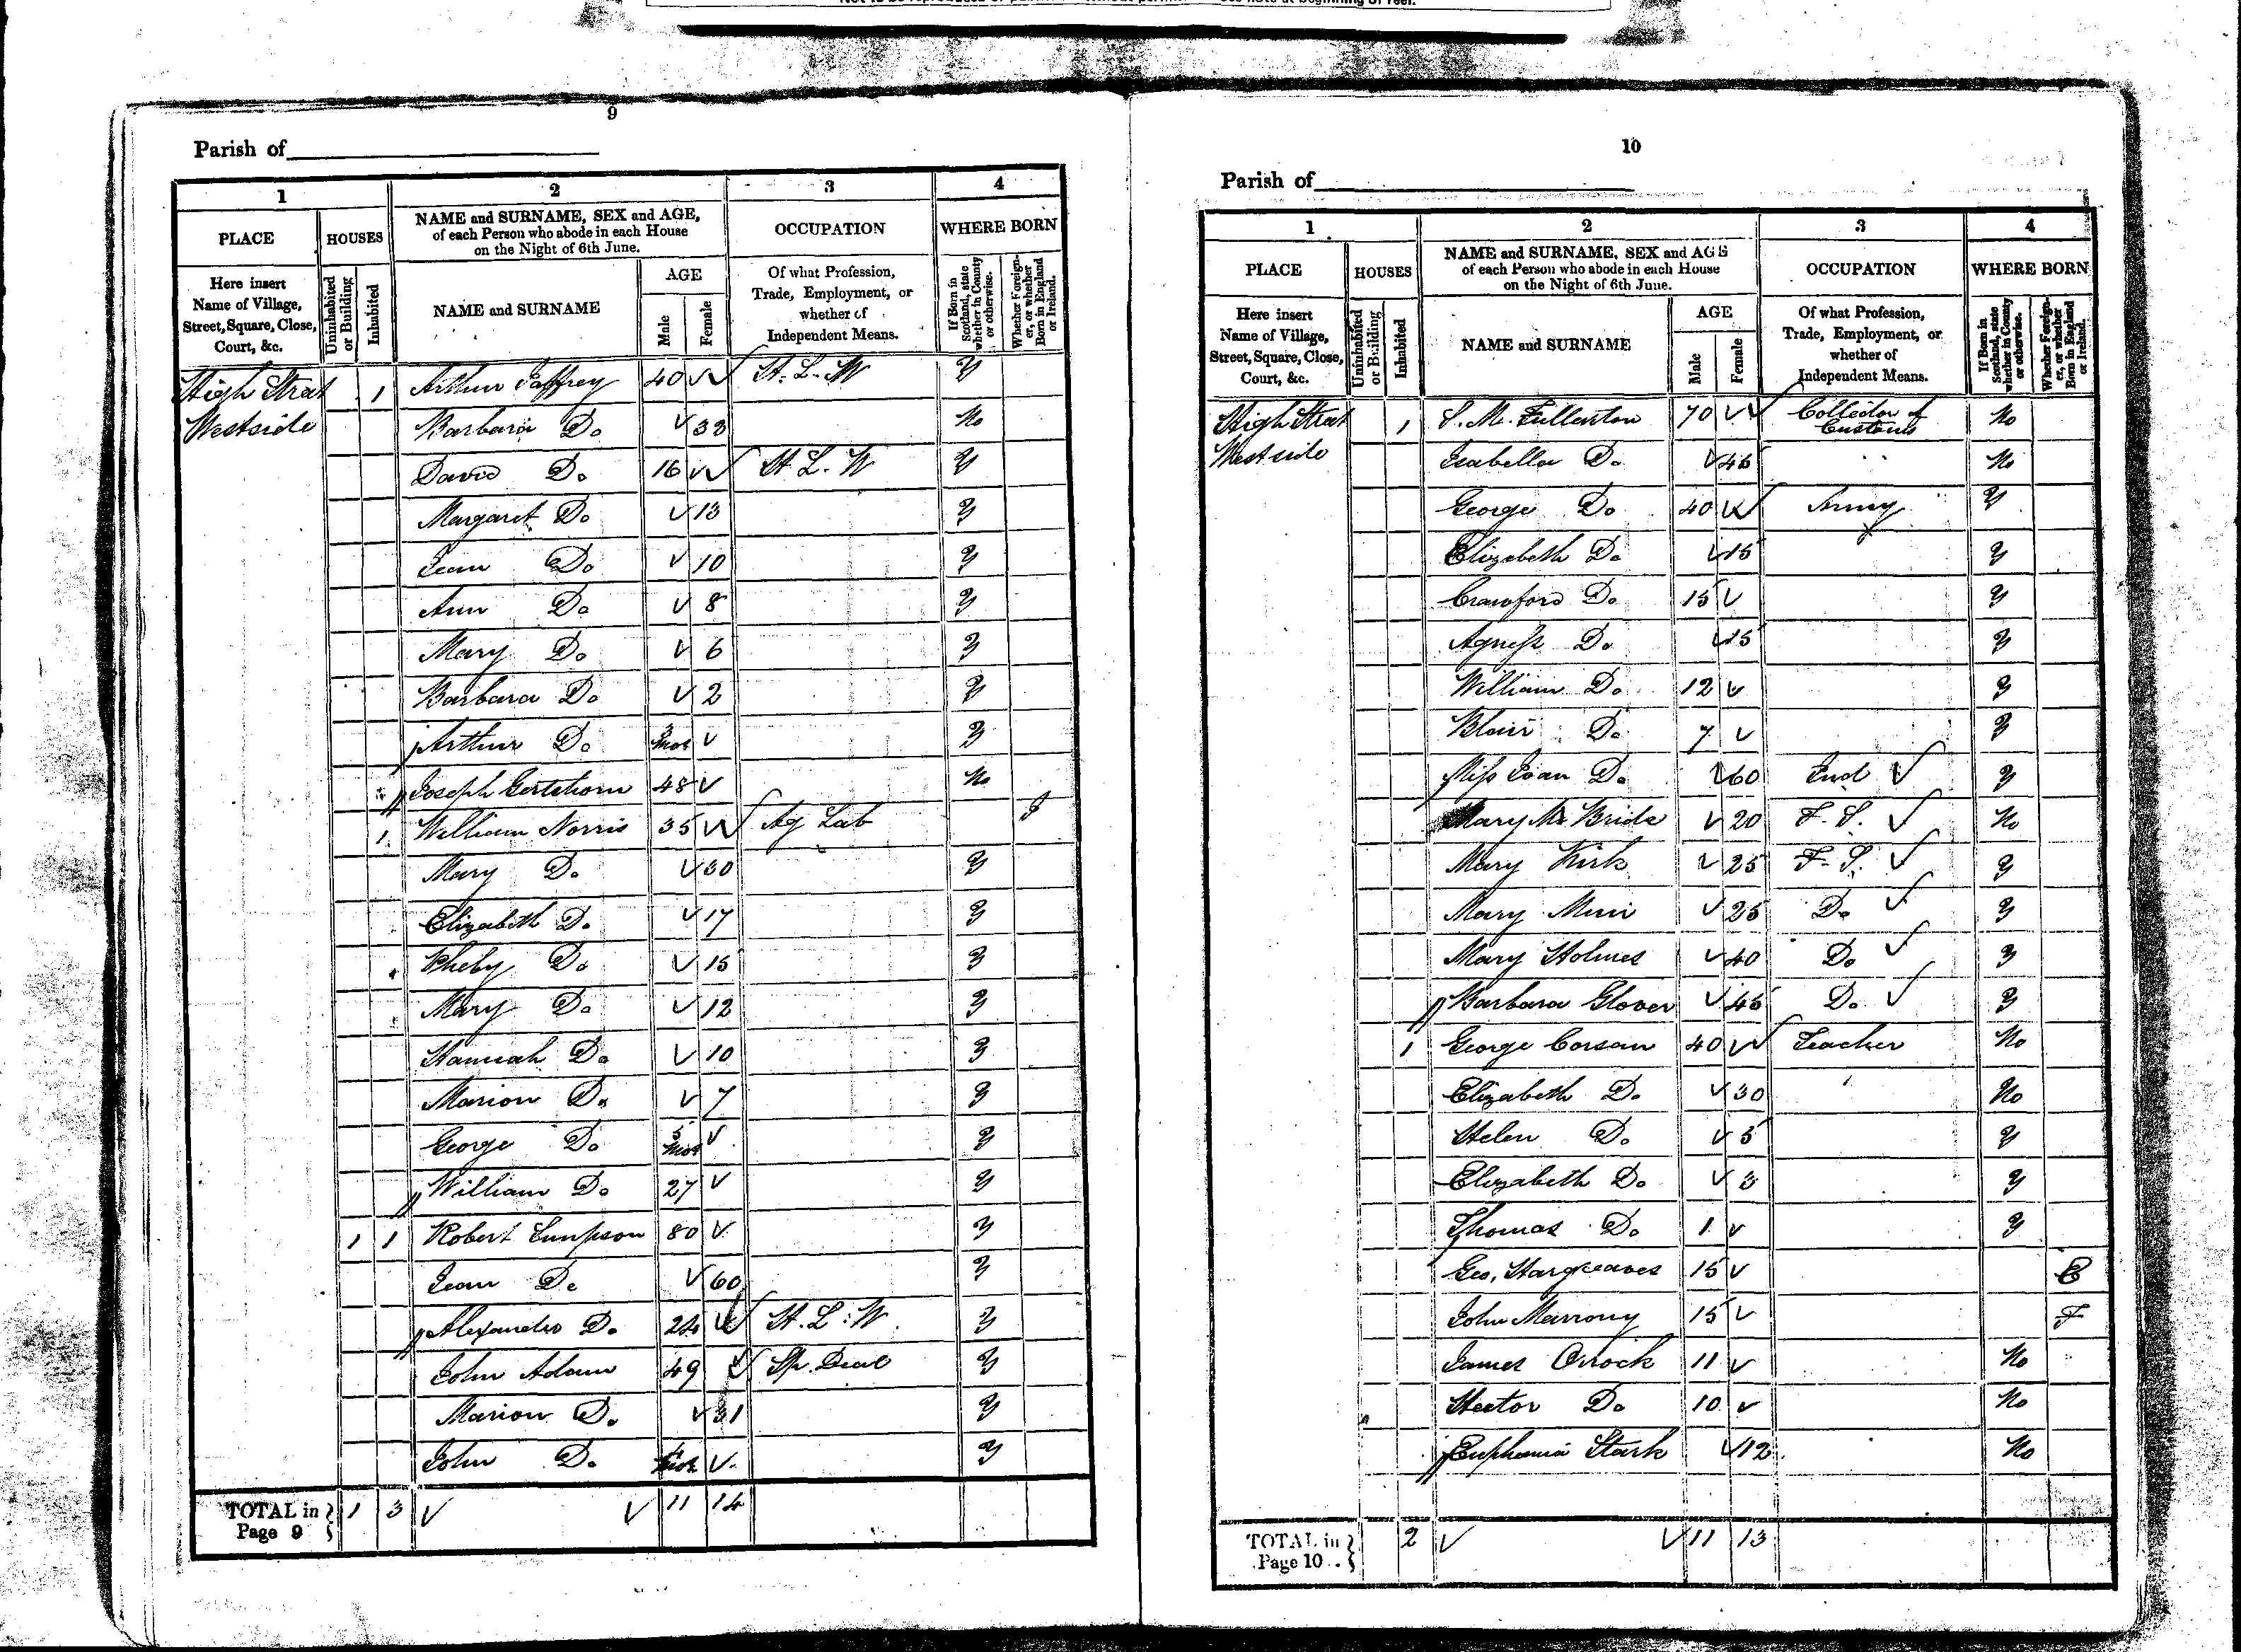 9
Parish of
1 2 3 4
PLACE HOUSES NAME and SURNAME, SEX and AGE, of each Person who abode in each House on the Night of 6th June. OCCUPATION WHERE BORN
Here insert Name of Village, Street, Square, Close, Court, &c. Uninhabited or Building Inhabited NAME and SURNAME AGE Male Female Of what Profession, Trade, Employment, or whether of Independent Means. If Born in Scotland, state whether in County or otherwise. Whether Foreigner, or whether Born in England or Ireland.
High Street 1 Arthur Jaffrey 40 H. L. W Y
Westside Barbara Do 32 No
David Do 16 H. L. W Y
Margaret Do 13 Y
Jean Do 10 Y
Ann Do 8 Y
Mary Do 6 Y
Barbara Do 2 Y
Arthur Do 3 Mos Y
Joseph 48 No
1 William Norris 35 Ag Lab I
Mary Do 30 Y
Elizabeth Do 17 Y
Pheby Do 15 Y
Mary Do 12 Y
Hannah Do 10 Y
Marion Do 7 Y
George Do 5 Mos Y
William Do 27 Y
1 1 Robert Simpson 80 Y
Jean Do 60 Y
Alexander Do 24 H. L. W Y
John Adam 49 Sp. Deal Y
Marion Do 31 Y
John Do Mos Y
TOTAL in Page 9 1 3 11 14
10
Parish of
1 2 3 4
PLACE HOUSES NAME and SURNAME, SEX and AGE of each Person who abode in each House on the Night of 6th June. OCCUPATION WHERE BORN
Here insert Name of Village, Street, Square, Close, Court, &c. Uninhabited or Building Inhabited NAME and SURNAME AGE Male Female Of what Profession, Trade, Employment, or whether of Independent Means. If Born in Scotland, state whether in County or otherwise. Whether Foreigner, or whether Born in England or Ireland.
High Street 1 S. M. Fullerton 70 Collector of Customs No
Westside Isabella Do 45 No
George Do 40 Army Y
Elizabeth Do 15 Y
Crawford Do 15 Y
Agness Do 15 Y
William Do 12 Y
Blair Do 7 Y
Miss Joan Do 60 Ind Y
Mary Mc Bride 20 F. S. No
Mary Kirk 25 F. S. Y
Mary Muir 25 Do Y
Mary Holmes 40 Do Y
Barbara Glover 45 Do Y
1 George Corsan 40 Teacher No
Elizabeth Do 30 No
Helen Do 5 Y
Elizabeth Do 3 Y
Thomas Do 1 Y
Geo. Hargreaves 15 E
John Marrony 15 F
James Orrock 11 No
Hector Do 10 No
Euphemia Stark 12 No
TOTAL in Page 10 2 11 13